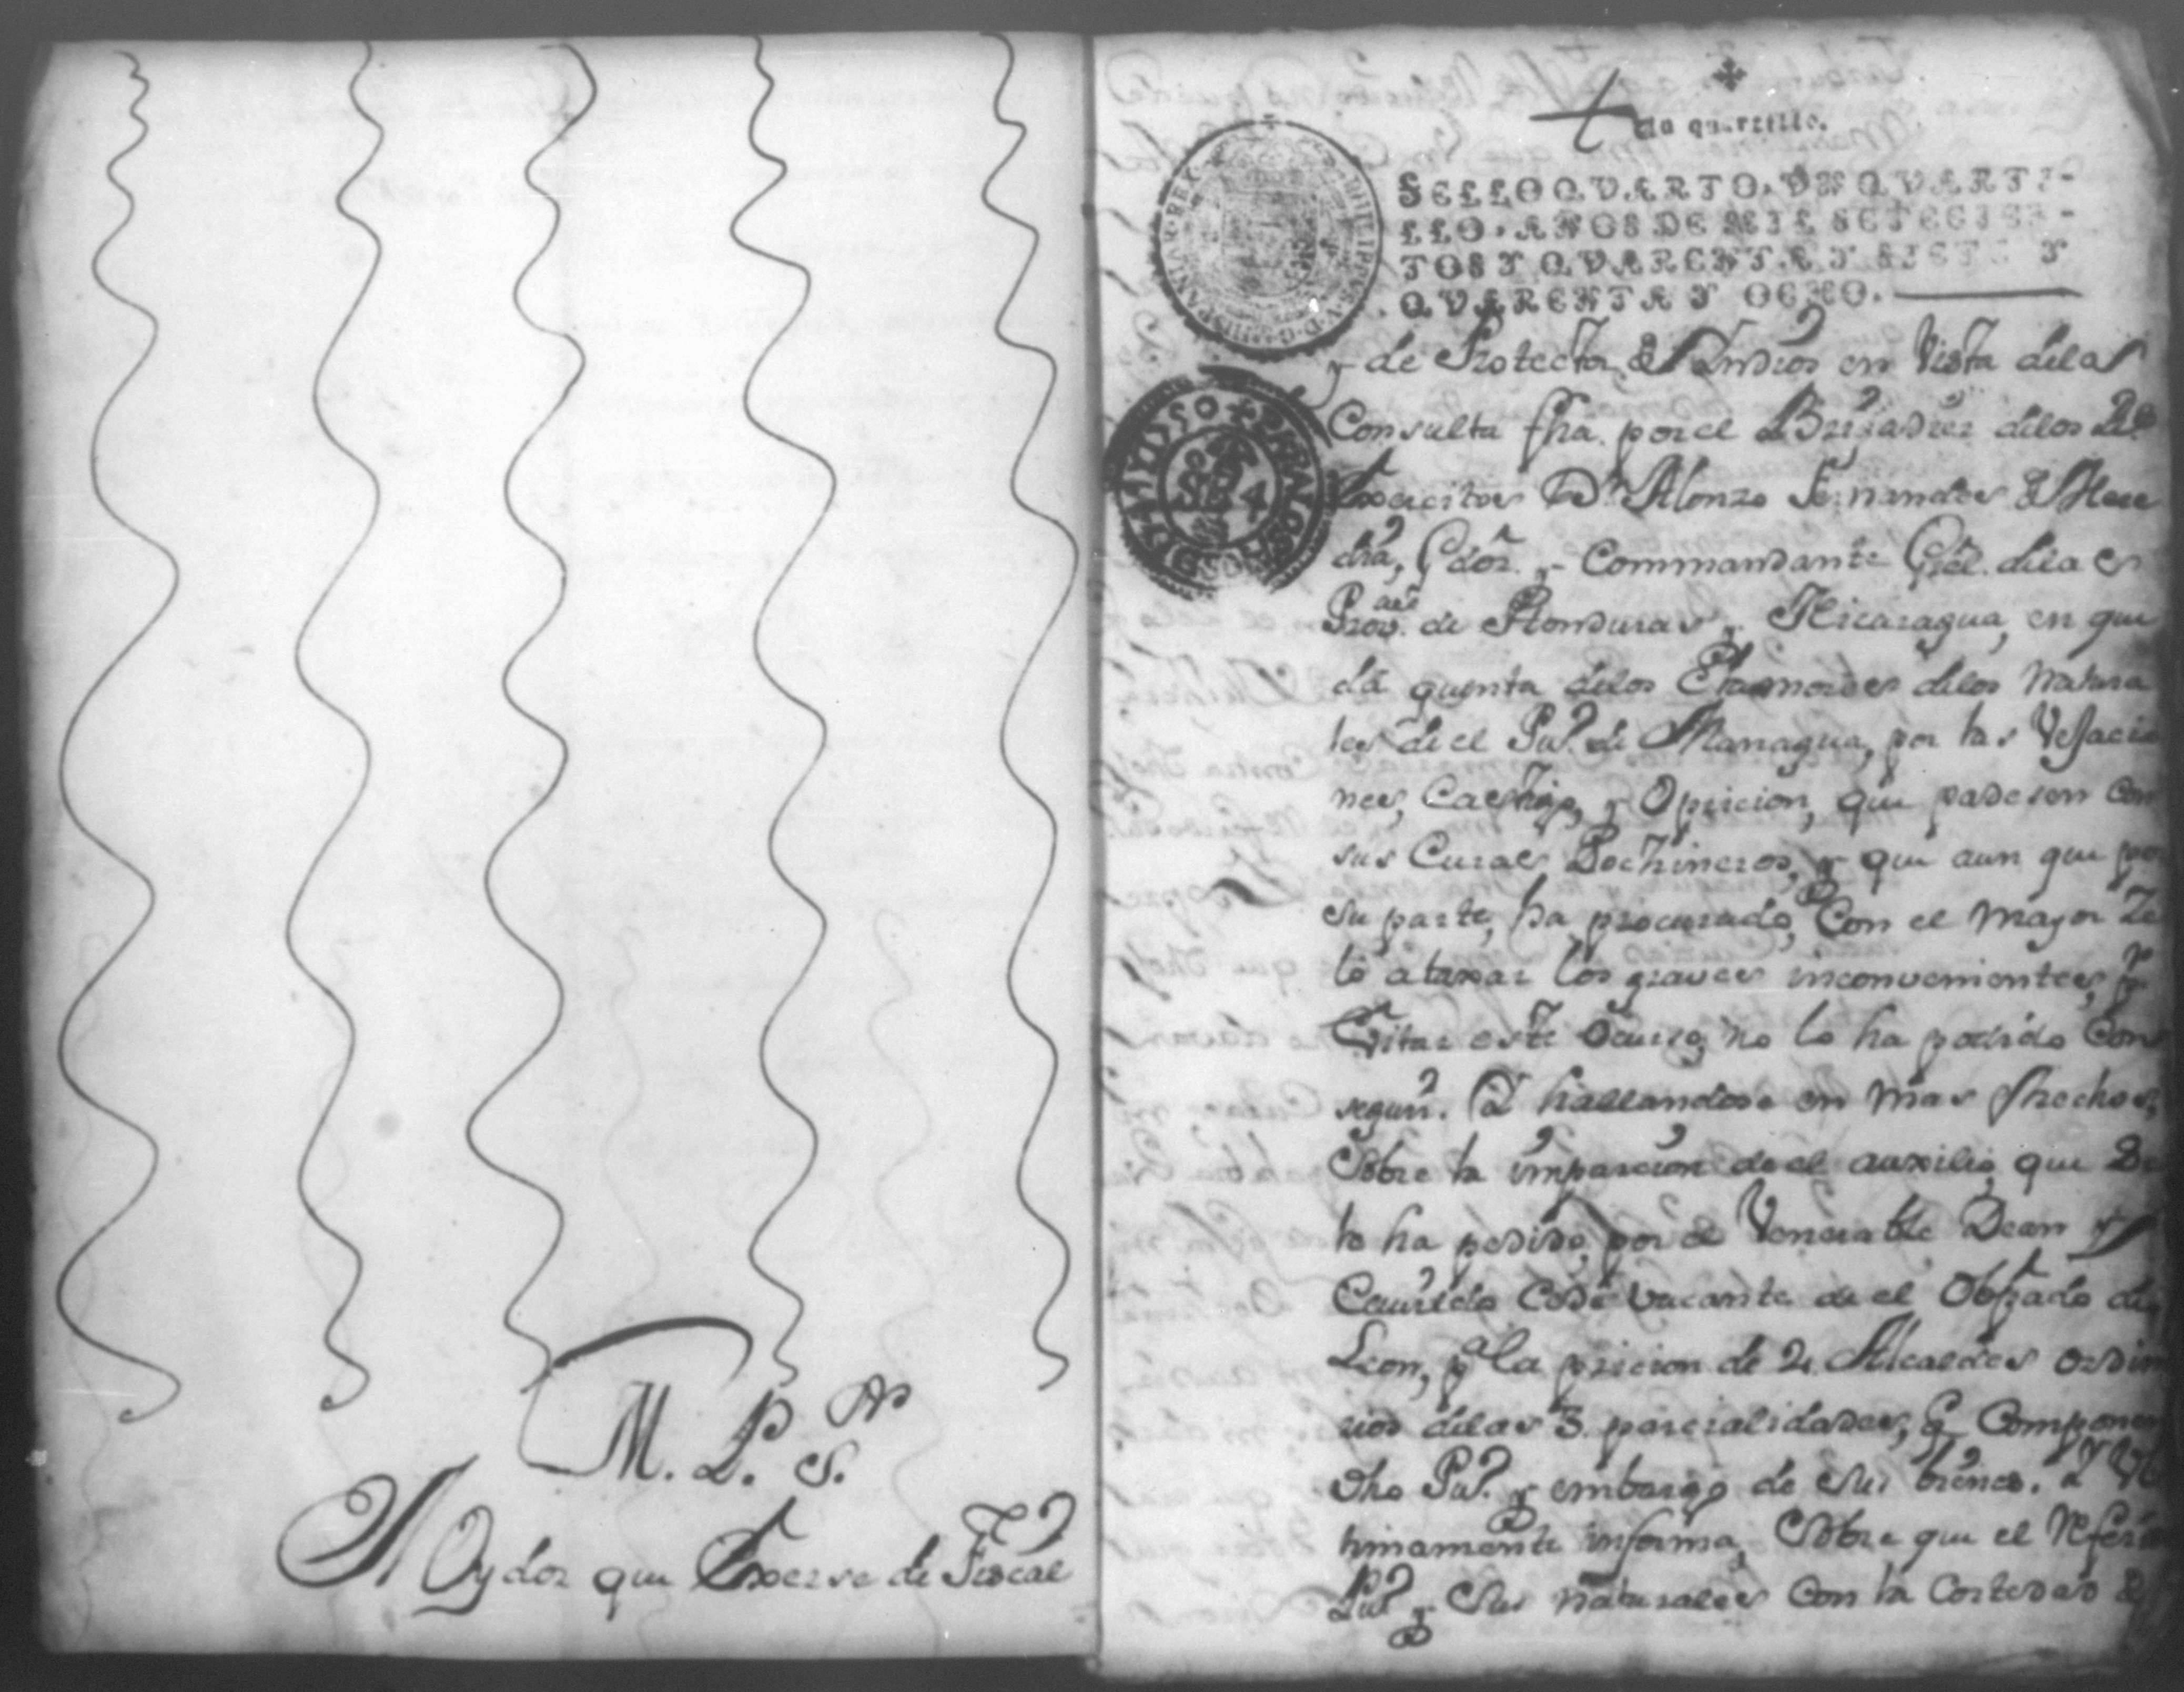 M. P. S.or
El Oydor que Exerse de Fiscal
Un quartillo.
SELLO QVARTO, VN QVARTI-
LLO, AÑOS DE MIL SETECIEN-
TOS Y QVARENTA Y SIETE Y
QVARENTA Y OCHO.
y de Protector de Indios en Vista dela
Consulta fha. por el Brigadier delos R.s
Exercitos D.n Alonzo Fernandes de Here
dia, Gdor. y Commandante Gral. dela es
Prov.as de Honduras y Nicaragua, en que
dá quenta delos Clamores delos Natura
les de el Pu.o de Managua, por las Vessacio
nes, Castigo, y Opricion, que padesen con
sus Curas Doctrineros, y que aun que por
su parte, ha procurado, Con el mayor Ze
lo ataxar los graves inconvenientes, y
Evitar este Ocurso, no lo ha podido Con
seguir. Y hallandose en mas Extrechos,
Sobre la imparcion de el auxilio, que Se
le ha pedido, por el Venerable Dean y
Cavildo Sede Vacante de el Obispado de
Leon, p.a la pricion de 2. Alcaldes ordina
rios delas 3. parcialidades, q. Componen
dho Pu.o y embargo de Sus bienes. Y Ul
timamente informa, Sobre que el Referido
Pu.o y Sus naturales Con la Cortedad de